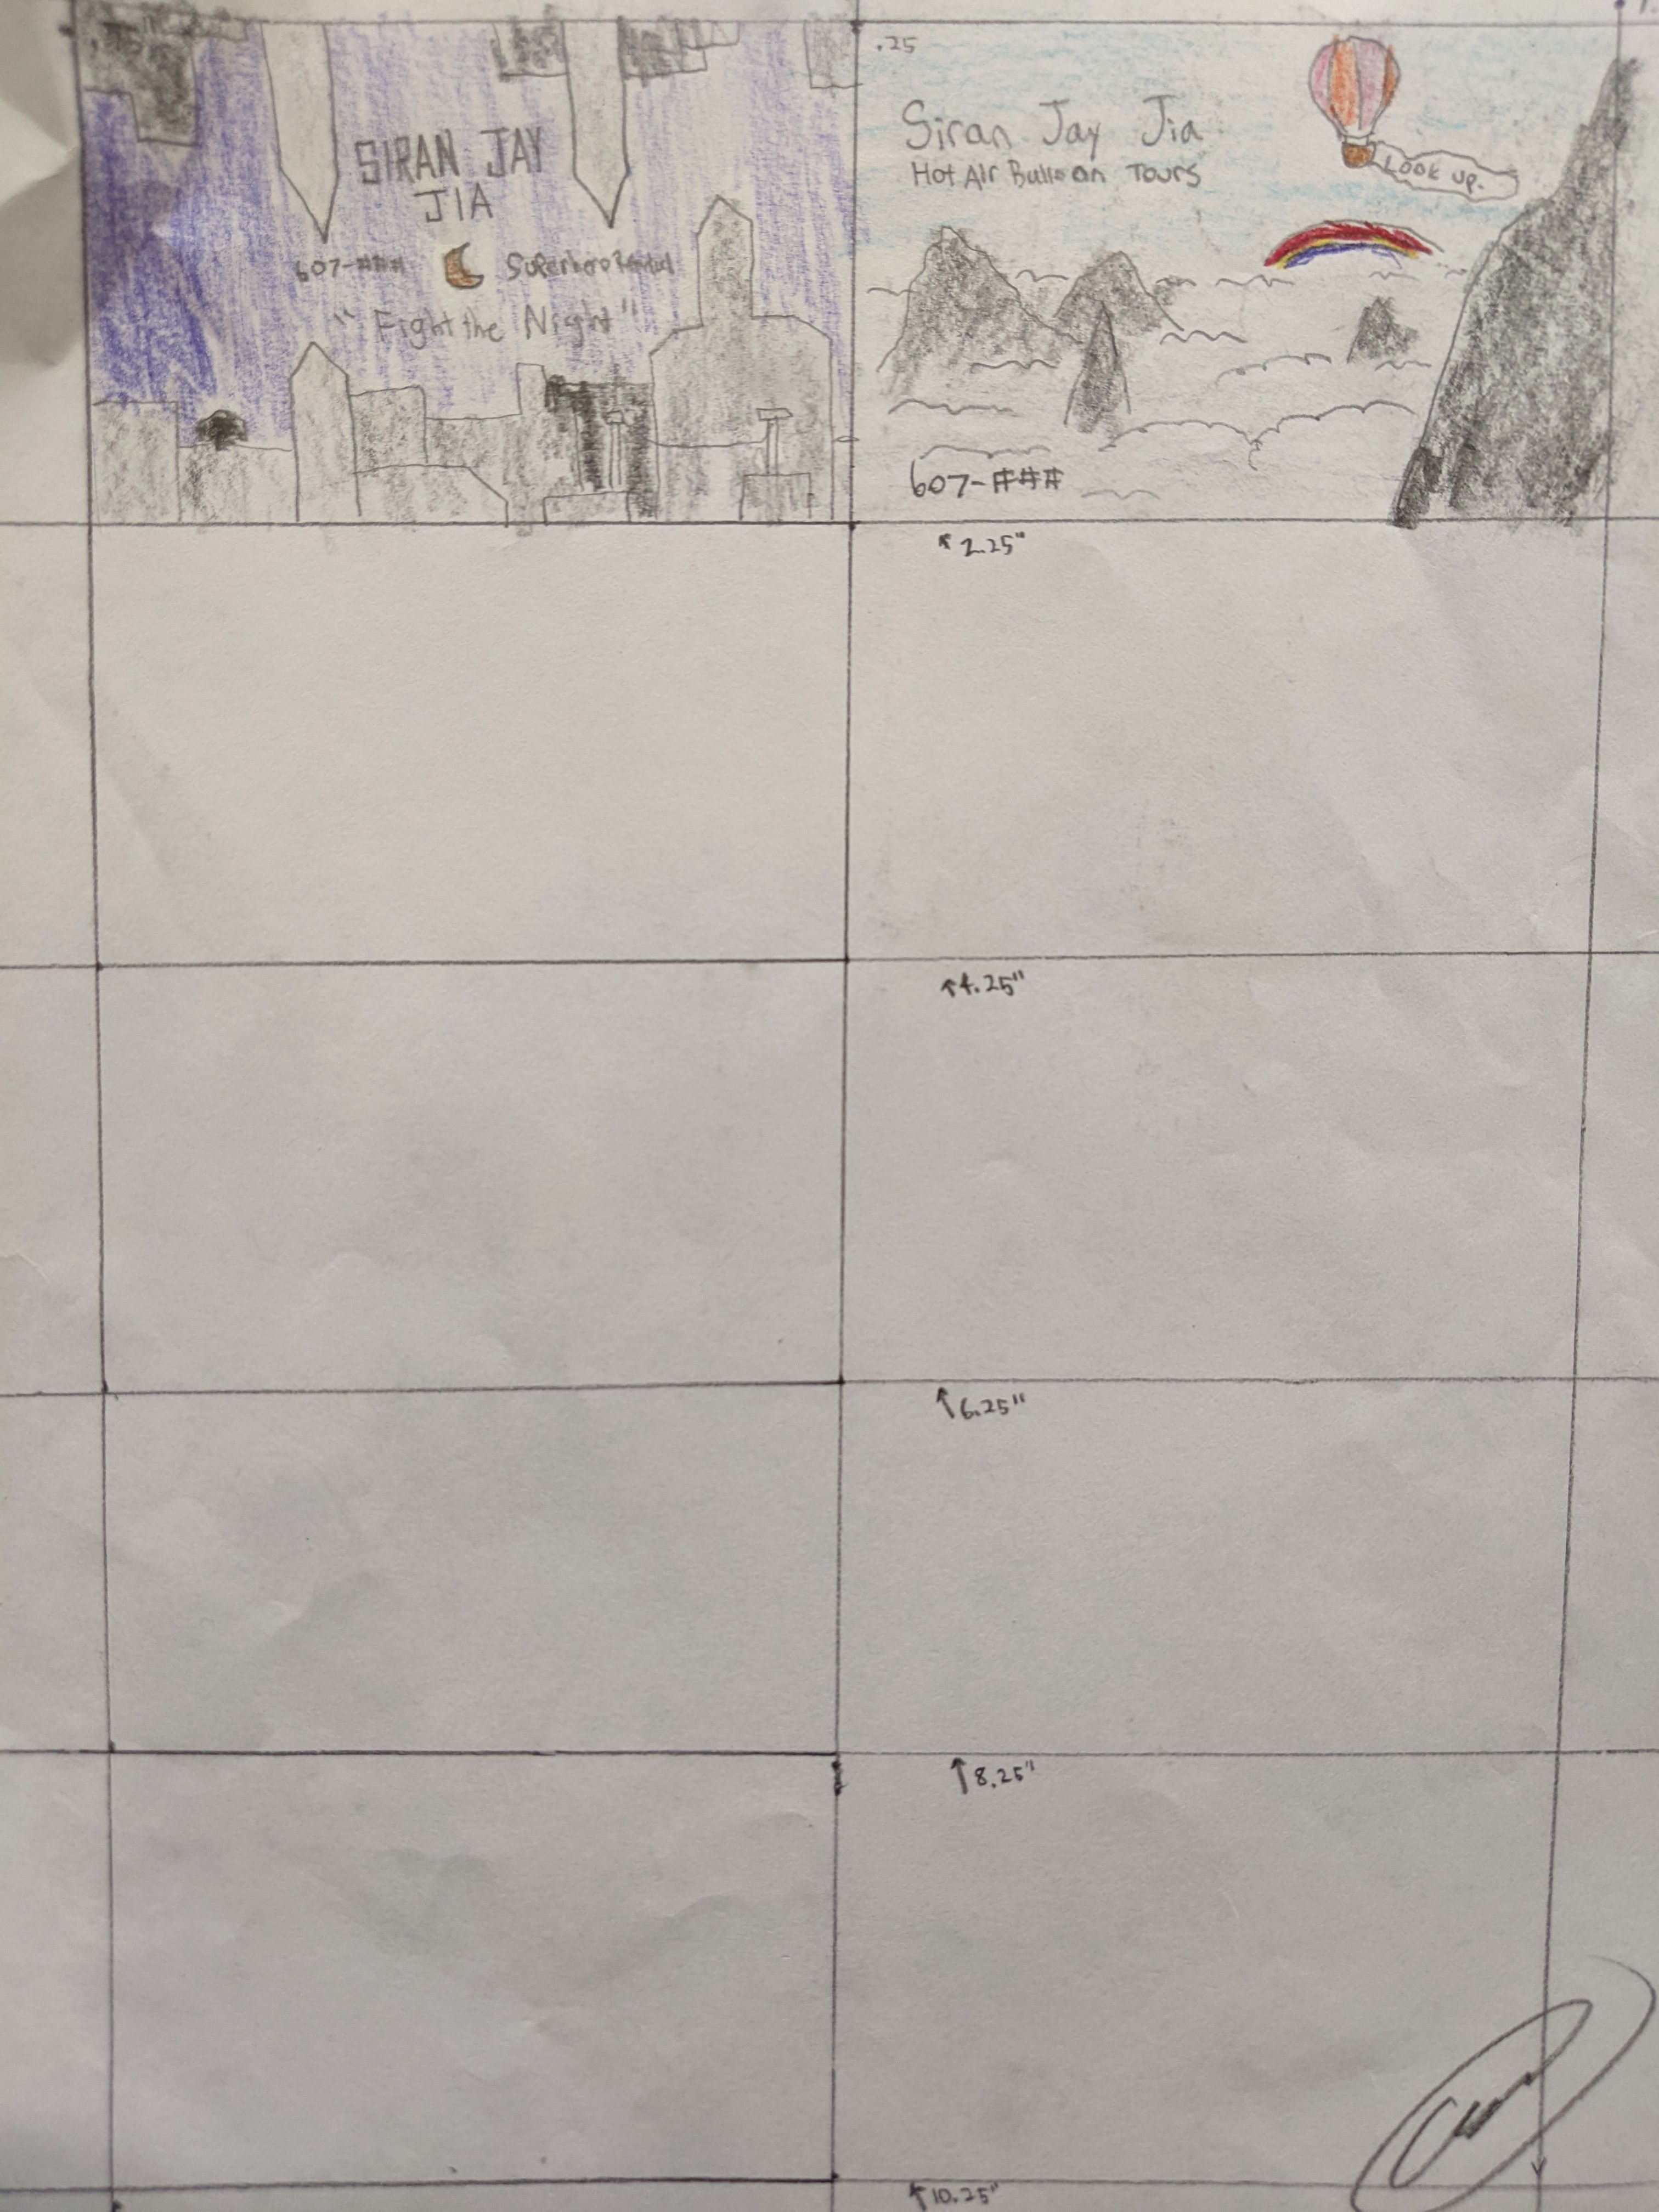 SIRAN JAY
JIA
607-###
Superhero
"Fight the Night"
.25
Siran Jay Jia
Hot Air Balloon Tours
Look up.
607-###
2.25"
4.25"
6.25"
8.25"
10.25"